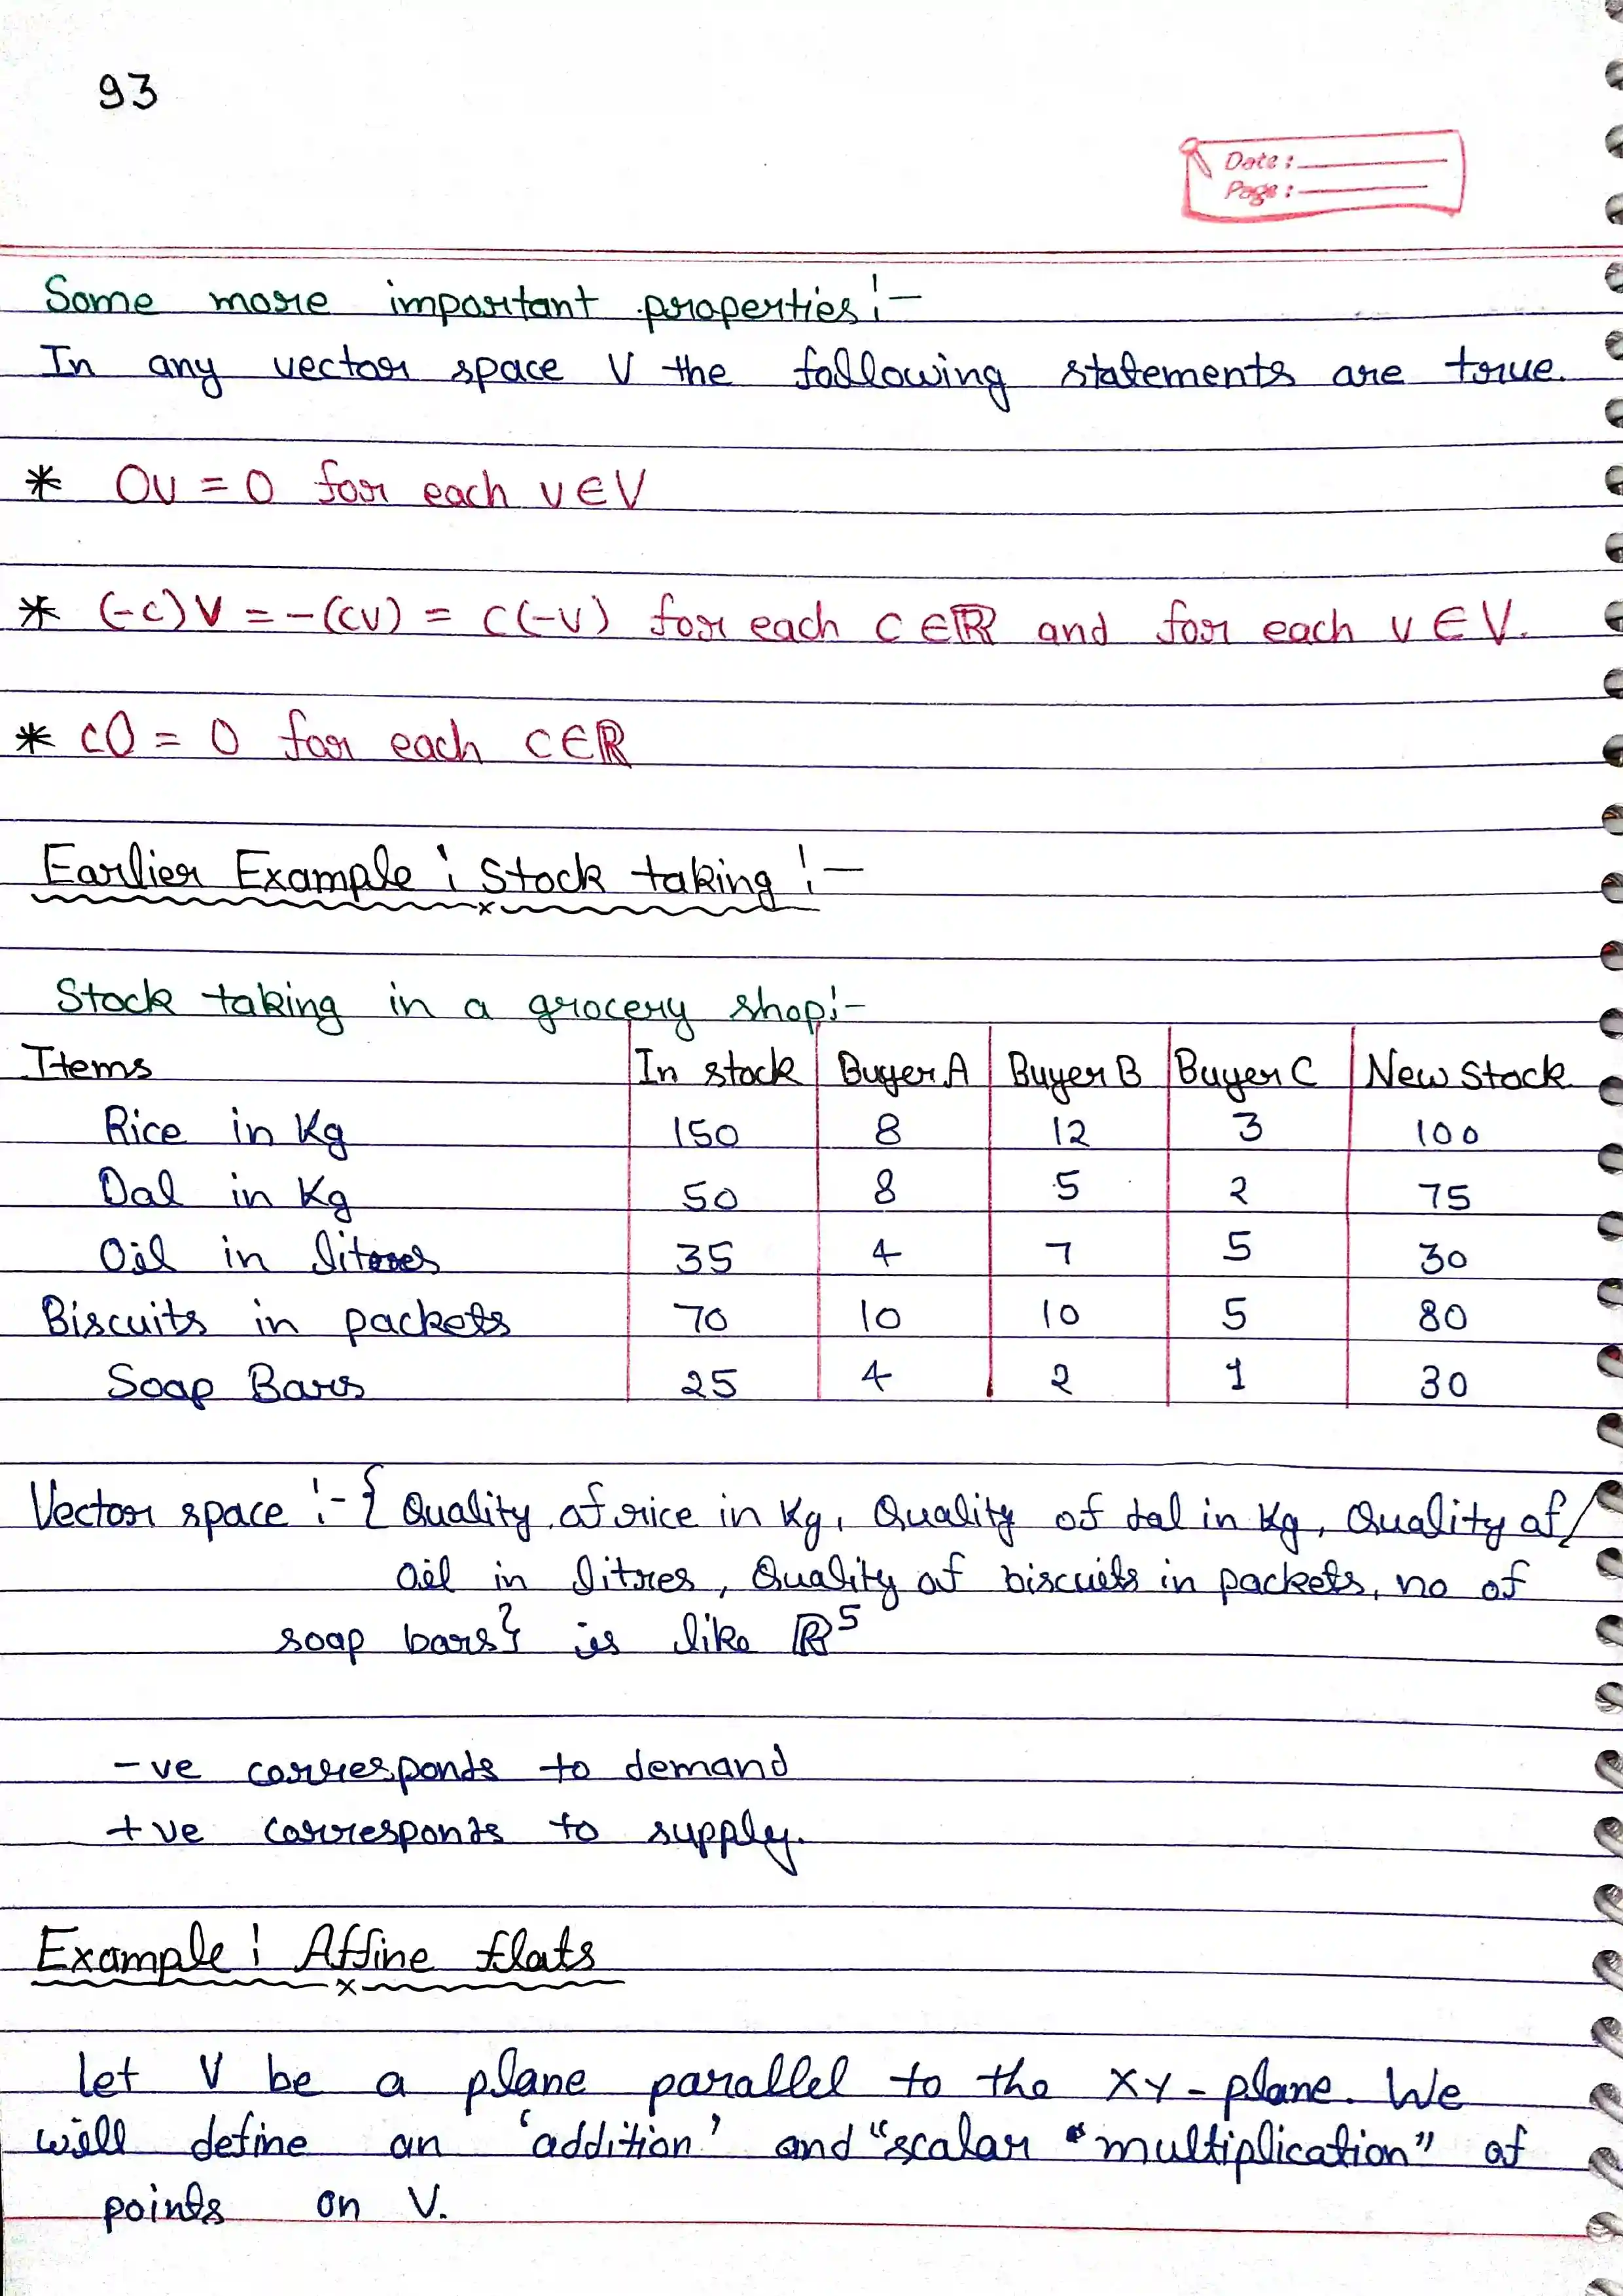 93
Date :
Page :
Some more important properties :-
In any vector space V the following statements are true.
* 0v = 0 for each v∈V
* (-c)v = -(cv) = c(-v) for each c∈ℝ and for each v∈V.
* c0 = 0 for each c∈ℝ
Earlier Example : Stock taking :-
Stock taking in a grocery shop:-
Items In stock Buyer A Buyer B Buyer C New Stock
Rice in Kg 150 8 12 3 100
Dal in Kg 50 8 5 2 75
Oil in litres 35 4 7 5 30
Biscuits in packets 70 10 10 5 80
Soap Bars 25 4 2 1 30
Vector space :- { Quality of rice in Kg, Quality of dal in Kg, Quality of/
Oil in litres, Quality of biscuits in packets, no of
soap bars} is like ℝ⁵
-ve corresponds to demand
+ve corresponds to supply.
Example : Affine flats
let V be a plane parallel to the XY-plane. We
will define an 'addition' and "scalar multiplication" of
points on V.